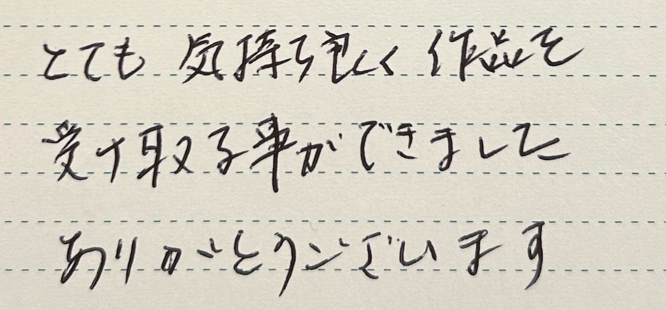 とても 気持ち良く 作品を
受け取る事ができました
ありがとうございます